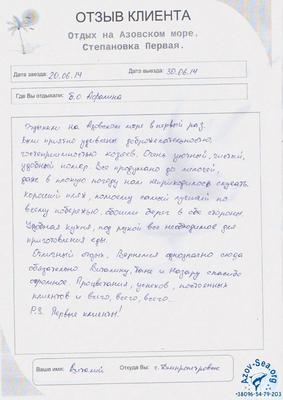 ОТЗЫВ КЛИЕНТА
Отдых на Азовском море.
Степановка Первая.
Дата заезда: 20.06.14 Дата выезда: 30.06.14
Где Вы отдыхали: Б.О. Афалина
Отдыхали на Азовском море в первый раз.
Были приятно удивлены доброжелательностью,
гостеприимностью хозяев. Очень уютный, чистый,
удобный номер. Все продумано до мелочей,
даже в плохую погоду нам не приходилось скучать.
Хороший пляж, полный ракушек по
всему побережью, обошли берег в обе стороны.
Удобная кухня, под рукой все необходимое для
приготовления еды.
Отличный отдых. Вернемся однозначно сюда
обязательно. Виталику, Тане и Назару спасибо
огромное. Процветания, успехов, постоянных
клиентов и всего, всего, всего...
P.S. Первые клиенты!
Ваше имя: Виталий Откуда Вы: г. Днепропетровск
Azov-Sea.org
+38096-54-79-203